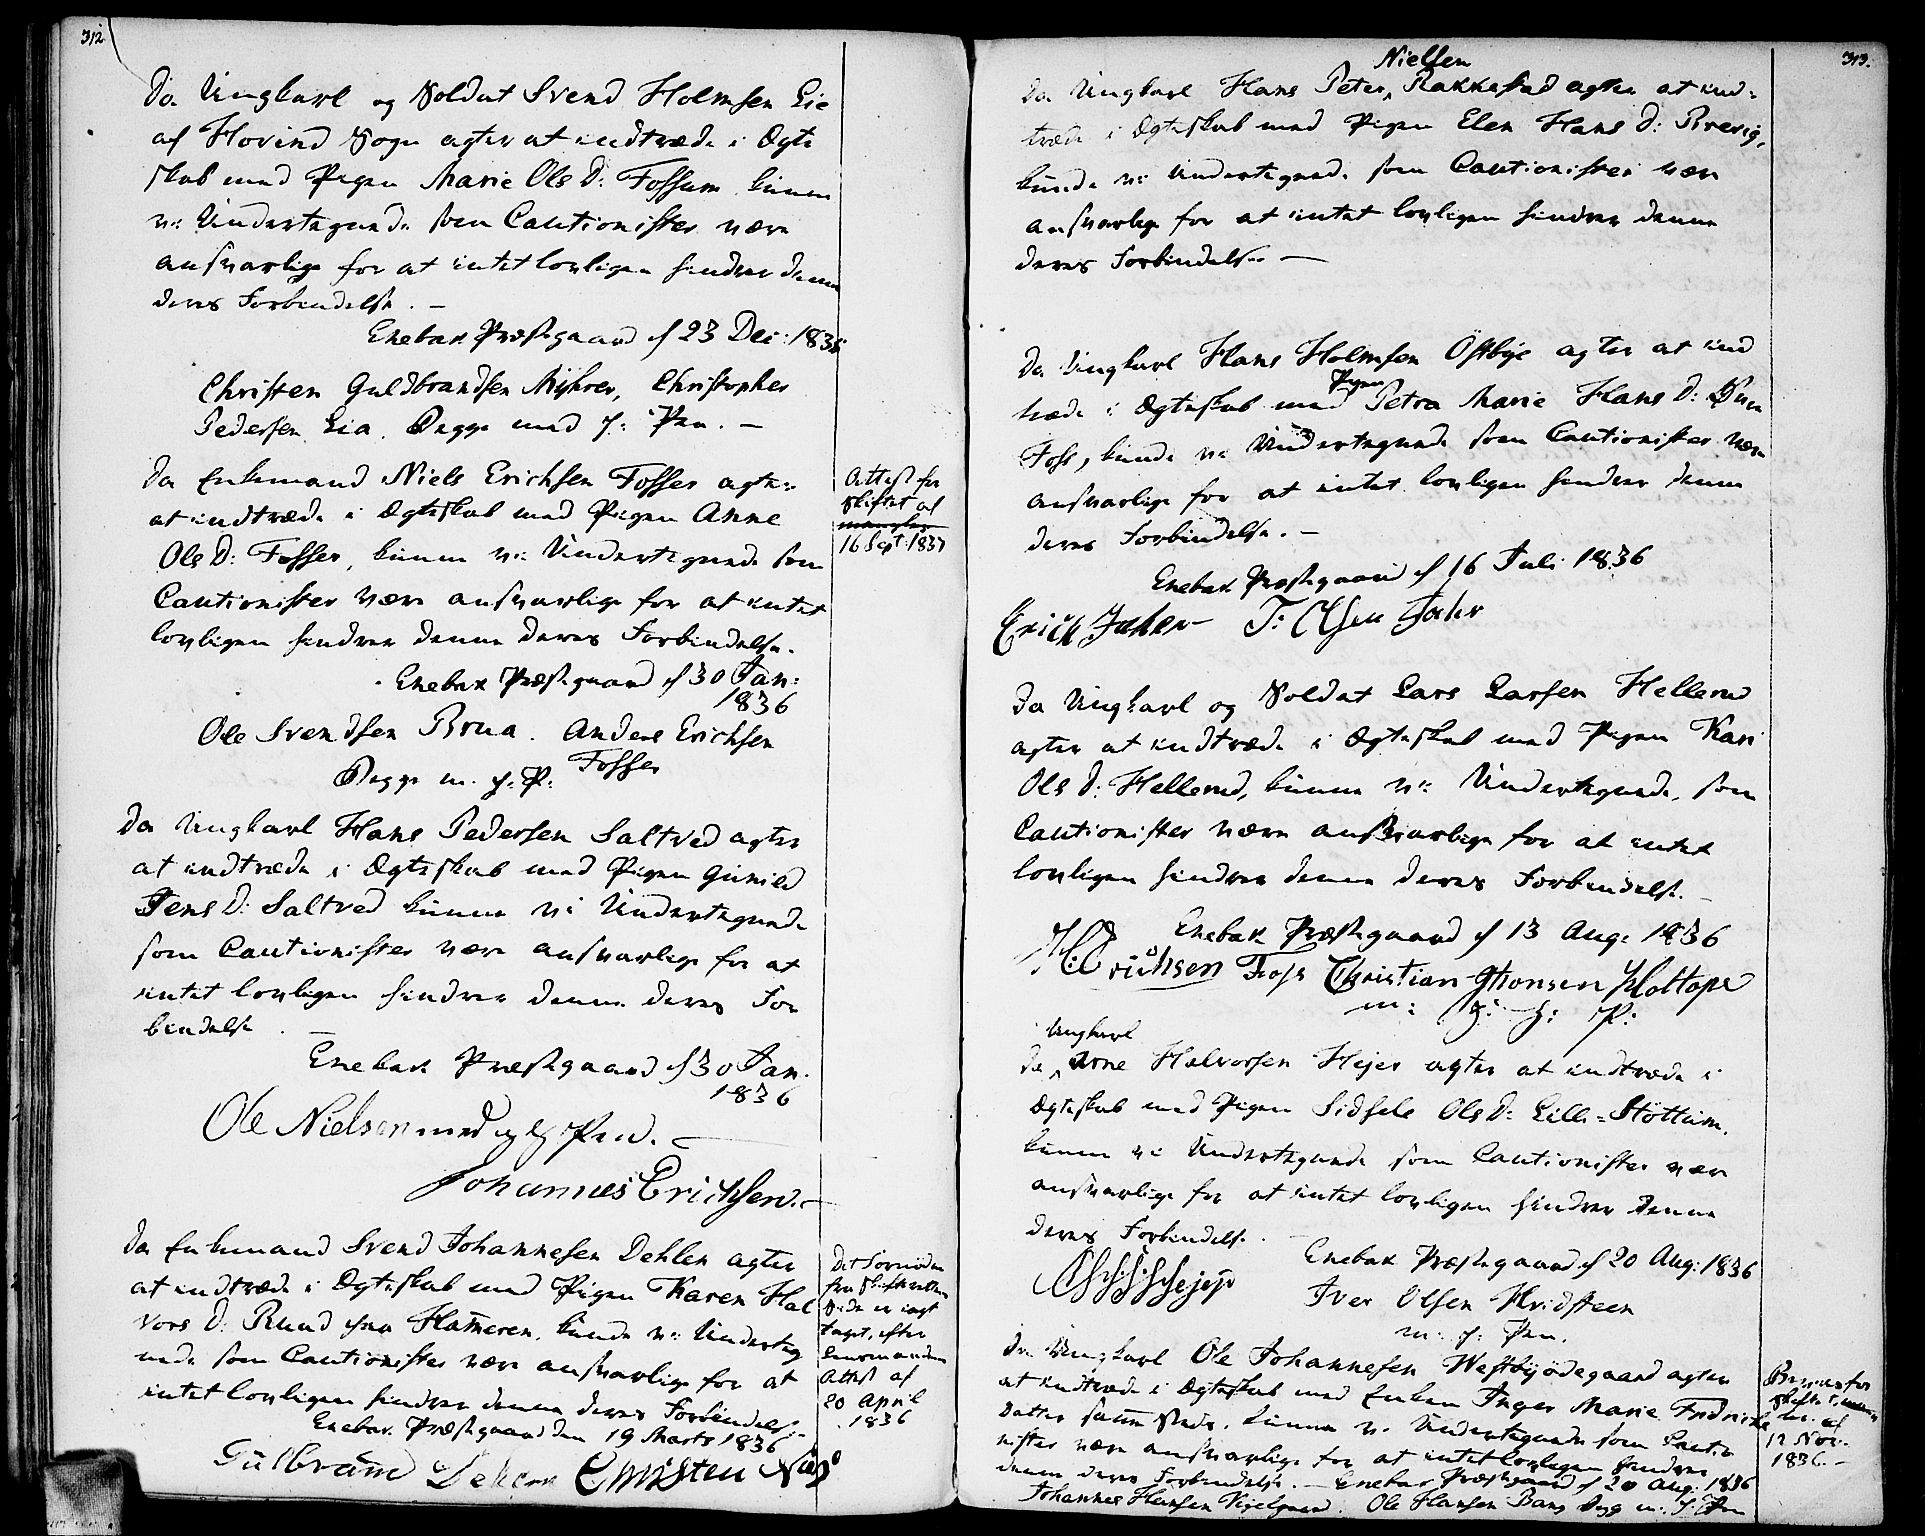 312
Da Ungkarl og Soldat Svend Holmsen Lie
af Hovind Sogn agter at indtræde i Ægte
skab med Pigen Marie Ols D: Fossum kunne
vi Undertegnede som Cautionister være
ansvarlige for at intet lovligen hindrer denne
deres Forbindelse. —
Enebak Præstgaard d 23 Dec: 1835
Christen Guldbrandsen Christopher
Pedersen Lia. Begge med f: Pen. —
Da Enkemand Niels Erichsen Fosser agter
at indtræde i Ægteskab med Pigen Anne
Ols D: Fosser, kunne vi Undertegnede som
Cautionister være ansvarlige for at intet
lovligen hindrer denne deres Forbindelse.
Enebak Præstgaard d 30 Jan:
1836
Ole Svendsen Brua. Anders Erichsen
Fosser
Begge m. f: P:
Attest for
skiftet af
mangler
16 Sept: 1837
Da Ungkarl Hans Pedersen Saltved agter
at indtræde i Ægteskab med Pigen Gunild
Jens D: Saltved kunne vi Undertegnede
som Cautionister være ansvarlige for at
intet lovligen hindrer denne deres For
bindelse. —
Enebak Præstgaard d 30 Jan.
1836
Ole Nielsen med Pen. —
Johannes Erichsen. —
Da Enkemand Svend Johannesen Dehlen agter
at indtræde i Ægteskab med Pigen Karen Hal
vors D: Rund fra Hammeren, kunde vi Underteg
nede som Cautionister være ansvarlige for at
intet lovligen hindrer denne deres Forbindelse
Enebak Præstgaard den 19 Marts 1836
Gulbrand Dehlen Christen
Det Fornødne
fra Skifteretten
Side er iagt
taget, efter
Lensmanden
Attest af
20 April
1836
313.
Nielsen
Da Ungkarl Hans Peter, Rakkestad agter at ind-
træde i Ægteskab med Pigen Elen Hans D: Brevig,
kunde vi Undertegnede som Cautionister være
ansvarlige for at intet lovligen hindrer denne
deres Forbindelse —
Da Ungkarl Hans Holmsen Østbye agter at ind
Pigen
træde i Ægteskab med Petra Marie Hans D:
Foss, kunde vi Undertegnede som Cautionister være
ansvarlige for at intet lovligen hindrer denne
deres Forbindelse. —
Enebak Præstgaard d 16 Juli 1836
Erich Jahr T: Olsen Jahr
Da Ungkarl og Soldat Lars Larsen Hellerud
agter at indtræde i Ægteskab med Pigen Kari
Ols D: Hellerud, kunne vi Undertegnede, som
Cautionister være ansvarlige for at intet
lovligen hindrer denne deres Forbindelse. —
Enebak Præstgaard d 13 Aug: 1836
H: Erichsen Foss Christian
m: P:
Ungkarl
Da Arne Halvorsen Hejer agter at indtræde i
Ægteskab med Pigen Sidsele Ols D: Lille-Støttum.
kunne vi Undertegnede som Cautionister være
ansvarlige for at intet lovligen hindrer denne
deres Forbindelse.
Enebak Præstgaard d 20 Aug: 1836
Iver Olsen Kvidsteen
m: f: Pen.
Da Ungkarl Ole Johannesen Westbyødegaard agter
at indtræde i Ægteskab med Enken Inger Marie Fredriks
Datter samme Stæds, kunne vi Undertegnede som Cautio
nister være ansvarlige for at intet lovligen hindrer
denne deres Forbindelse. — Enebak Præstgaard d 20 Aug: 1836
Johannes Hansen. Ole Hansen Bang Begge m. f: Pen
Beviis for
Skifte
af
12 Nov.
1836. —